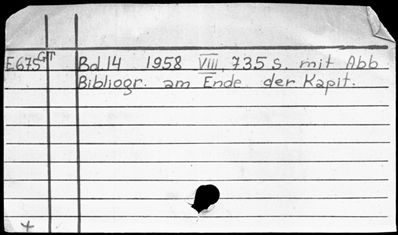 E675 GT Bd 14 1958 VIII, 735 s. mit Abb
Bibliogr. am Ende der Kapit.
+